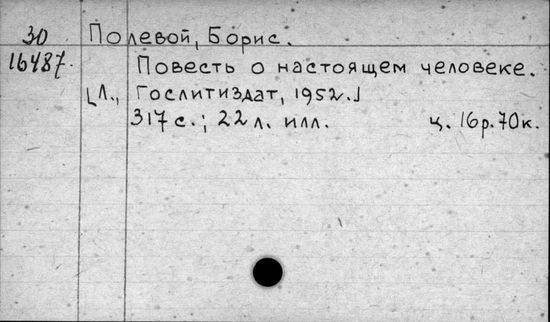 30 Полевой, Борис.
16487. Повесть о настоящем человеке.
[Л., Гослитиздат, 1952.]
317 с.; 22 л. илл. ц. 16 р. 70 к.